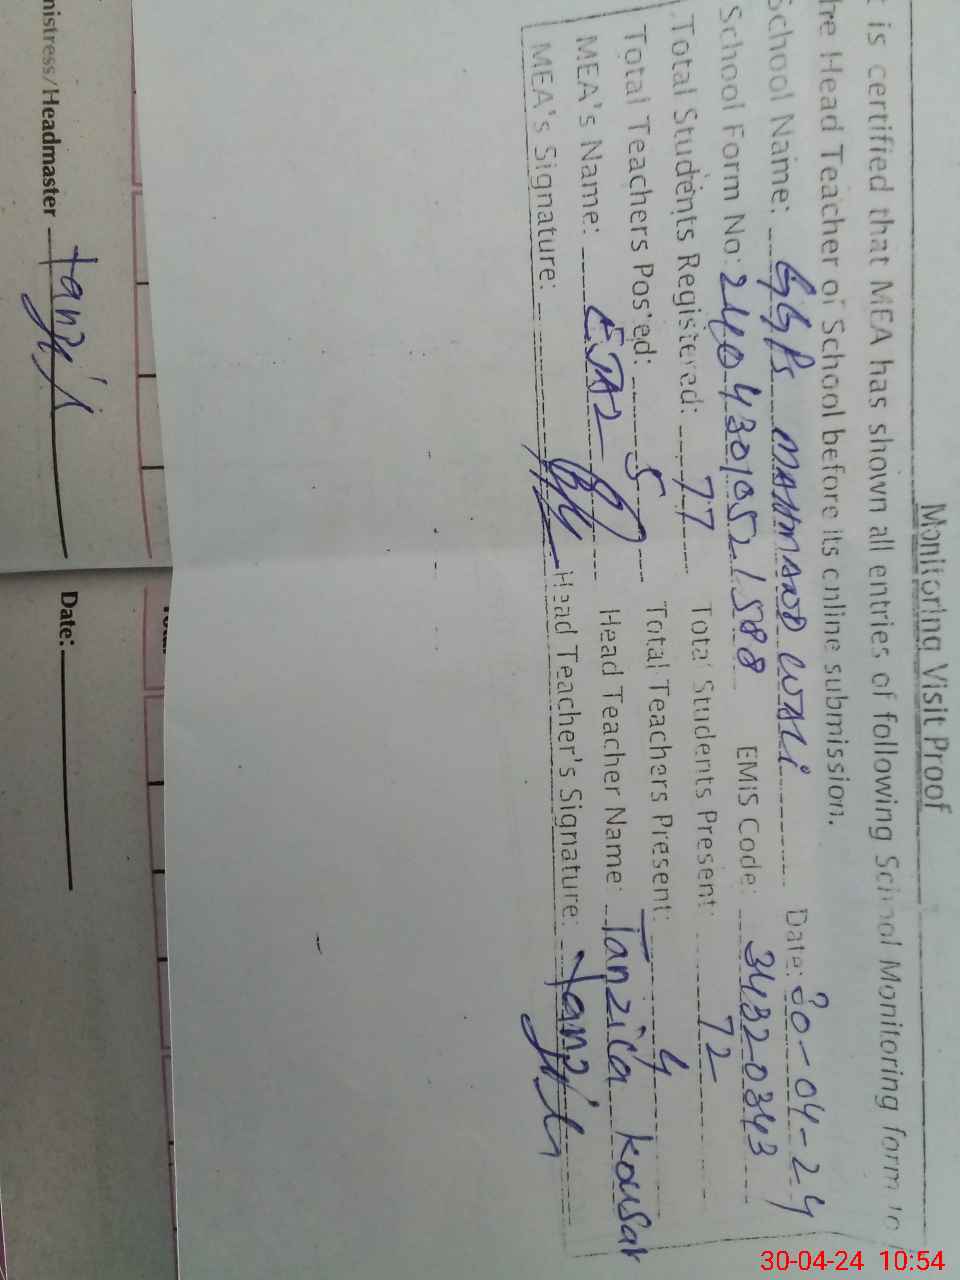 Monitoring Visit Proof
t is certified that MEA has shown all entries of following School Monitoring form to
he Head Teacher of School before its online submission.
School Name: GGPS MAHMAND WALi Date: 30-04-24
School Form No: 24043010521588 EMIS Code: 34320343
Total Students Registered: 77 Total Students Present: 72
Total Teachers Posted: 5 Total Teachers Present: 4
MEA's Name: EJAZ Head Teacher Name: Tanzila kousar
MEA's Signature: Head Teacher's Signature: Tanzila
mistress/Headmaster Date:
30-04-24 10:54